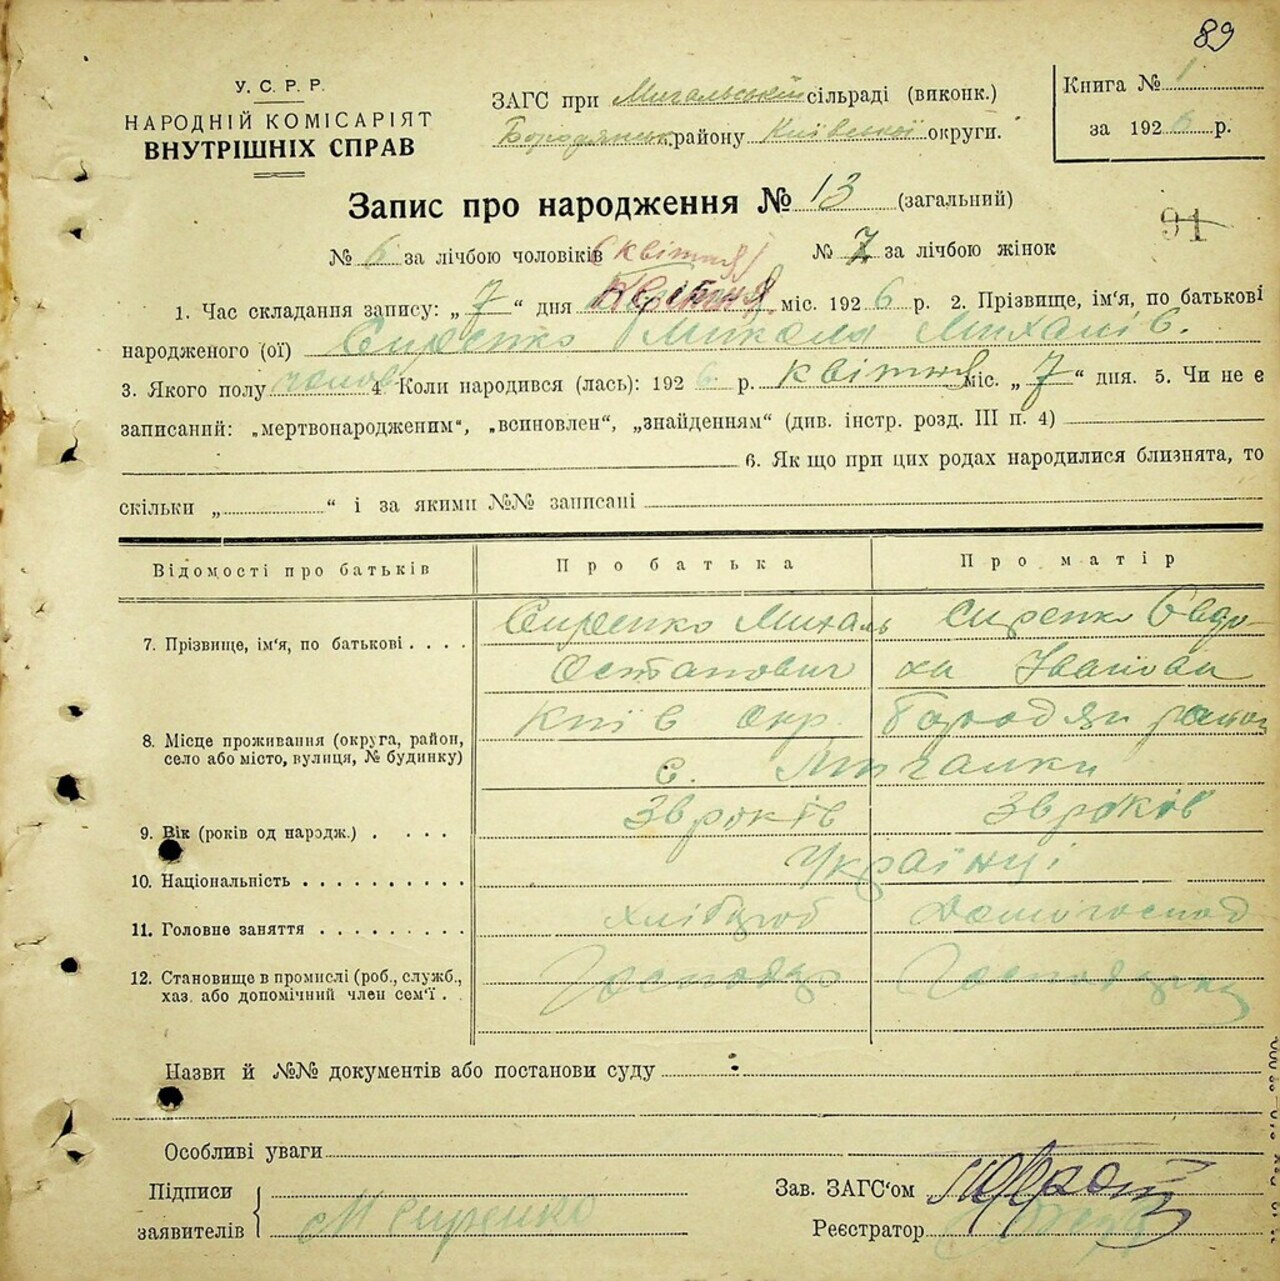 89
У. С. Р. Р.
НАРОДНІЙ КОМІСАРІЯТ
ВНУТРІШНІХ СПРАВ
ЗАГС при Мигальській сільраді (виконк.)
Бородянськ району Київської округи.
Книга № 1
за 1926 р.
Запис про народження № 13 (загальний)
91
№ 6 за лічбою чоловіків (квітня) № 7 за лічбою жінок
1. Час складання запису: „ 7 “ дня міс. 1926 р. 2. Прізвище, ім'я, по батькові
народженого (ої) Сиренко Микола Михайлів.
3. Якого полу чолов 4. Коли народився (лась): 1926 р. квітня міс. „ 7 “ дня. 5. Чи не є
записаний: „мертвонародженим“, „всиновлен“, „знайденням“ (див. інстр. розд. III п. 4)
6. Як що при цих родах народилися близнята, то
скільки „ “ і за якими №№ записані
Відомості про батьків Про батька Про матір
7. Прізвище, ім'я, по батькові . . . . Сиренко Михаль Сиренко Євдо-
Остапович ха Іванова
8. Місце проживання (округа, район, село або місто, вулиця, № будинку) Київ окр. Бородян район
с. Мигалки
9. Вік (років од нарѻдж.) . . . . 36 років 36 років
10. Національність . . . . . . . . . . Українці
11. Головне заняття . . . . . . . . . хлібороб Домогоспод
12. Становище в промислі (роб., служб., хаз. або допомічний член сем'ї . . Господар
Назви й №№ документів або постанови суду
Особливі уваги
Підписи
заявителів
М Сиренко
Зав. ЗАГС'ом
Реєстратор